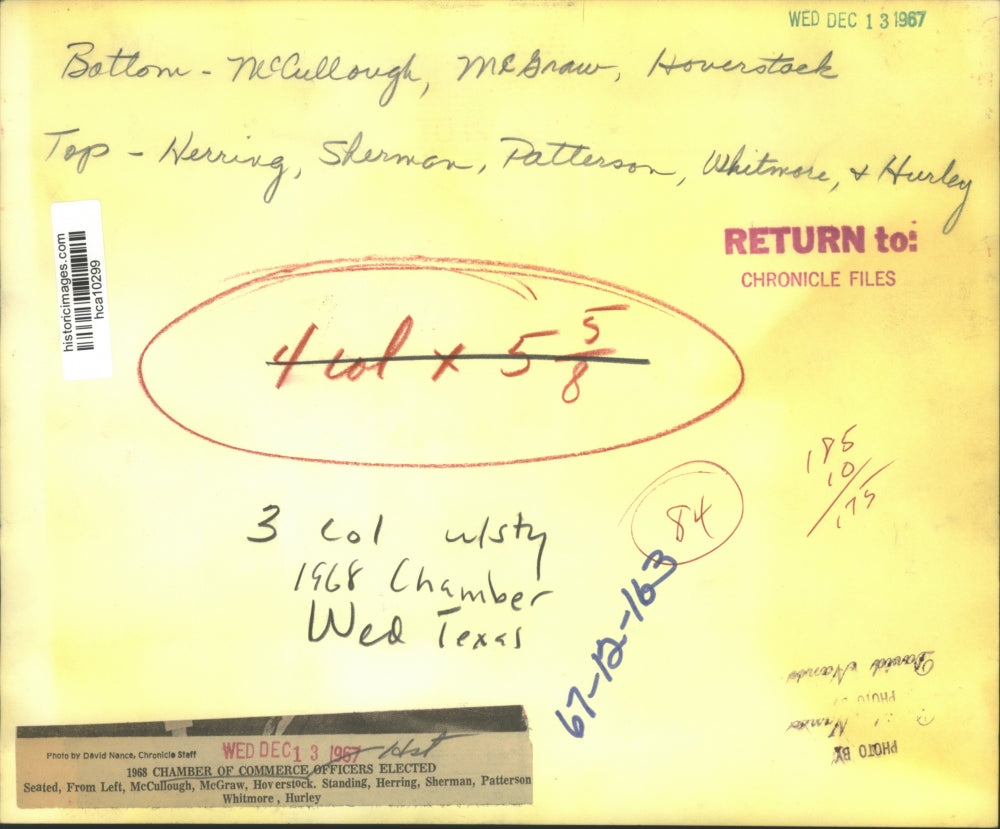 WED DEC 13 1967
Bottom - McCullough, McGraw, Hoverstock
Top - Herring, Sherman, Patterson, Whitmore, & Hurley
historicimages.com
hca10299
RETURN to:
CHRONICLE FILES
4 col x 5 5/8
185
10
175
84
3 col w/sty
1968 Chamber
Wed Texas
67-12-163
David Nance
PHOTO BY
PHOTO BY
Photo by David Nance, Chronicle Staff
WED DEC 13 1967 Hst
1968 CHAMBER OF COMMERCE OFFICERS ELECTED
Seated, From Left, McCullough, McGraw, Hoverstock. Standing, Herring, Sherman, Patterson
Whitmore, Hurley